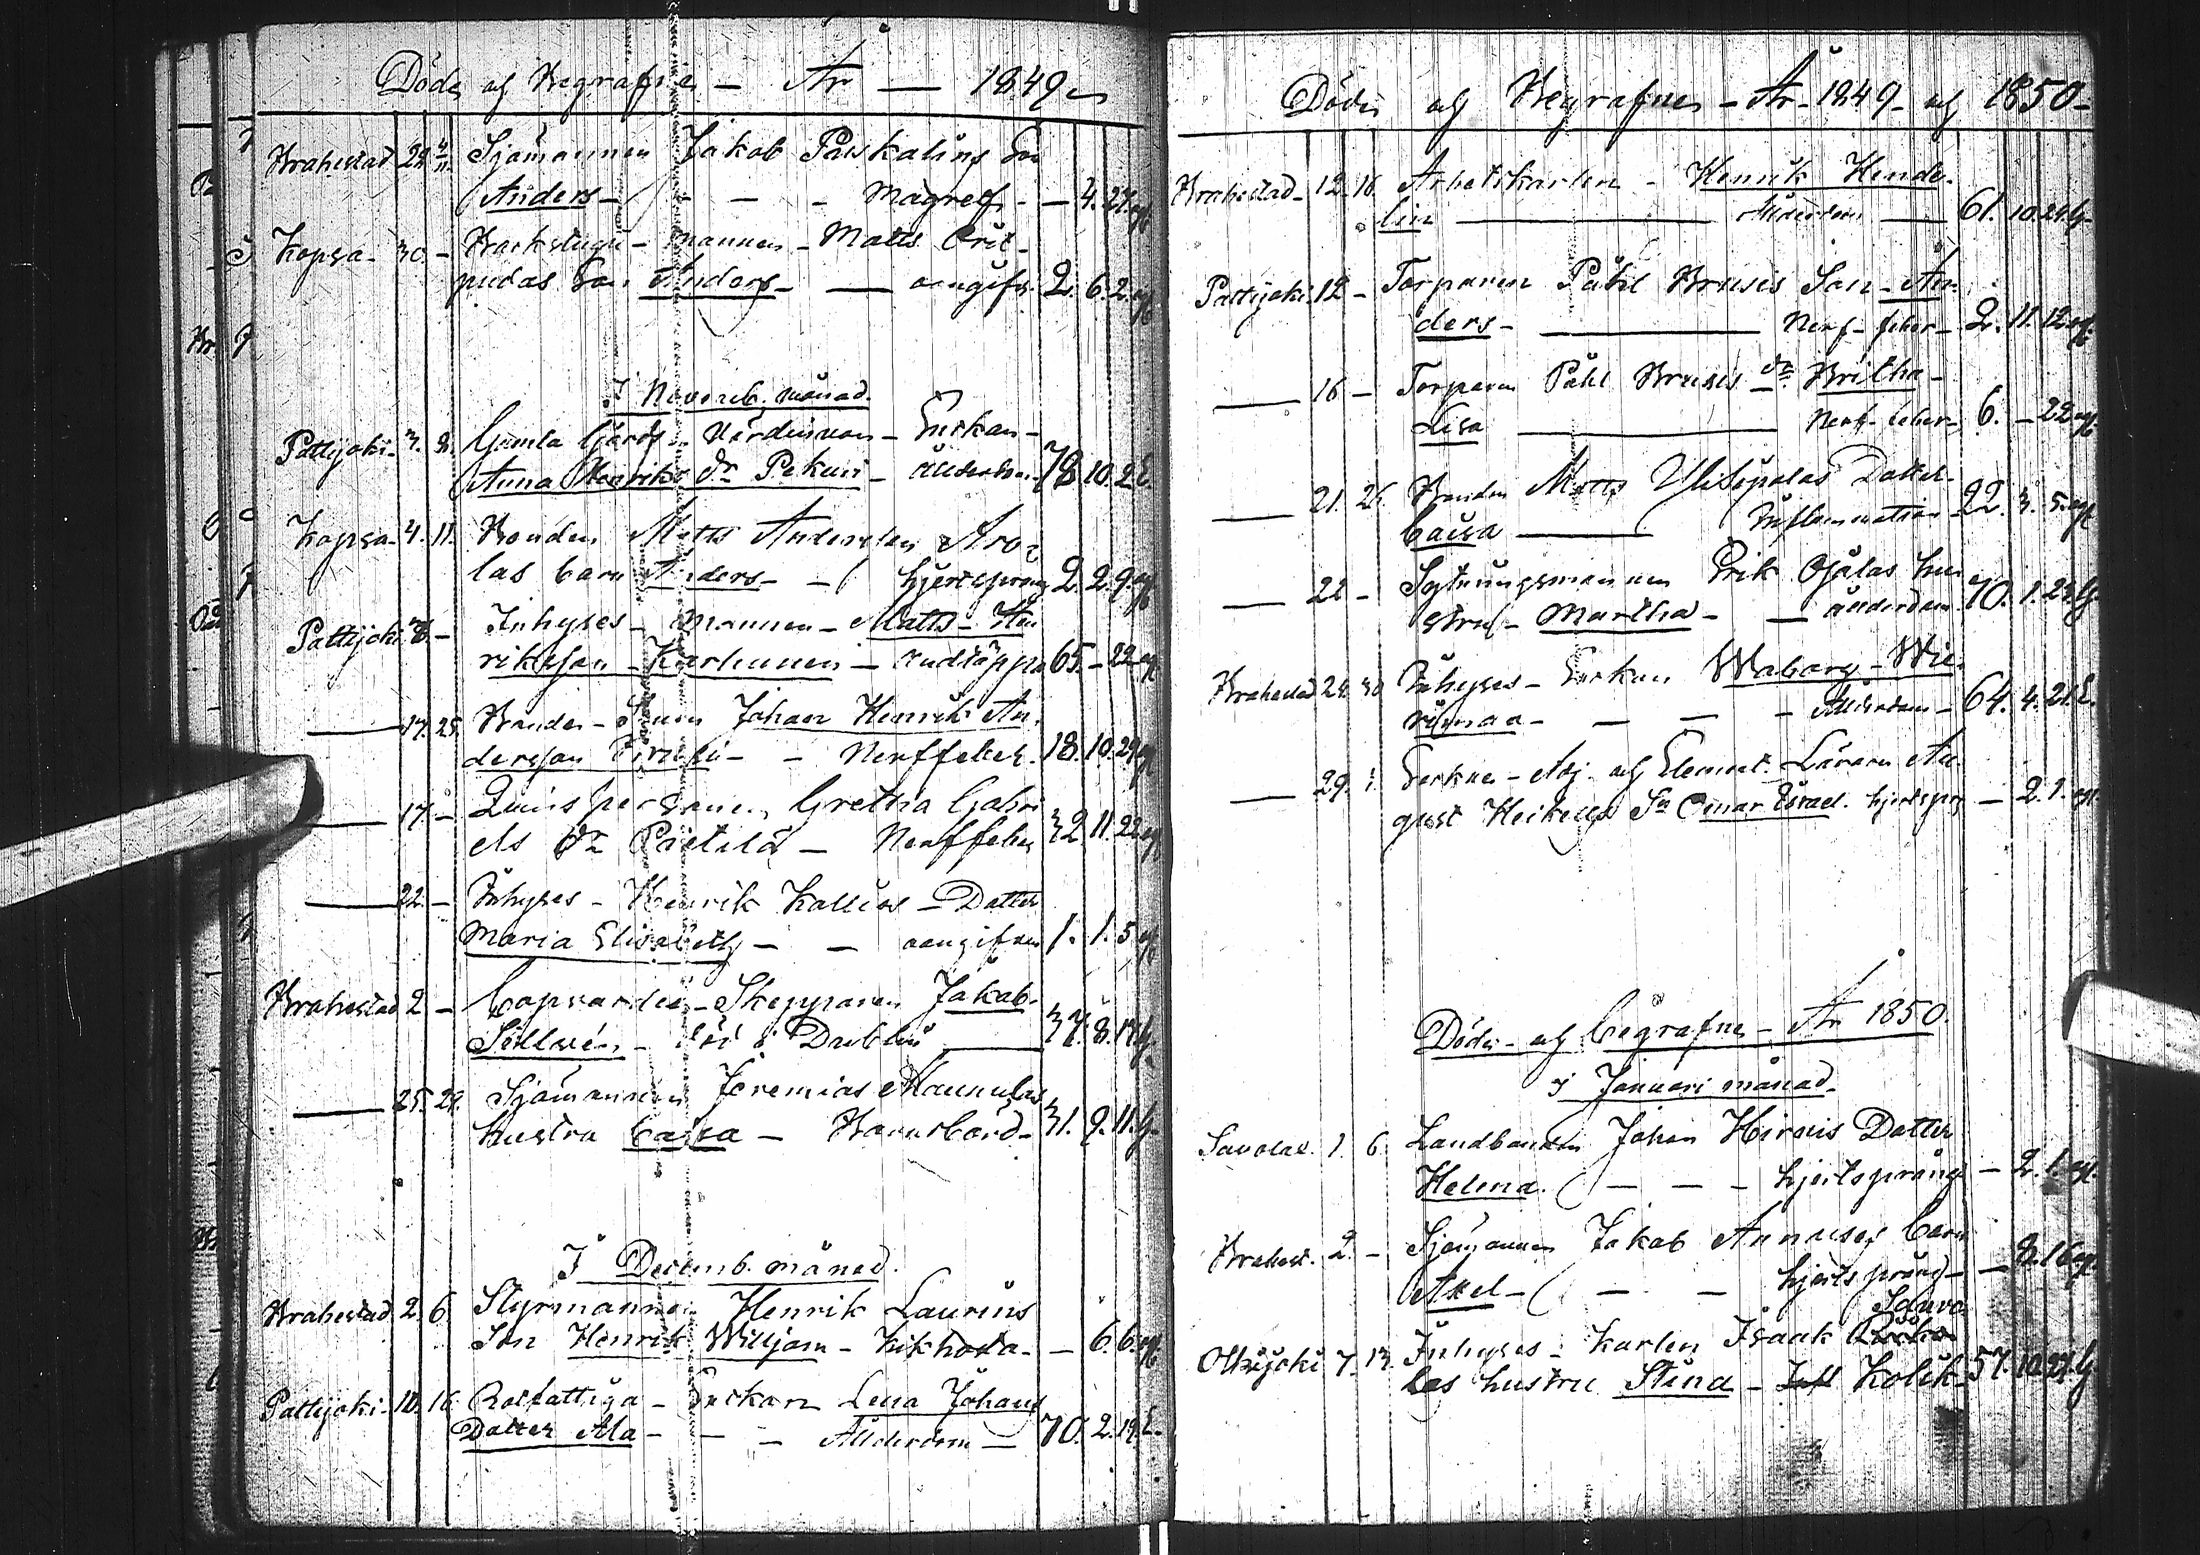 Döde och Begrafne - År - 1849
Brahestad 28 4/11 Sjömannen Jakob Paskalins Son
Anders - - - Magref - - 4. 27. og
Kopsa - 30 - Backstugu - mannen - Matts
pudas Son Anders - - oangifn 2. 6. 2. og
I Novemb. månad.
Pattijoki - 3. Gamla Gärds - Värdinnan - Enkan -
Anna Henriks Dr Pekuri - Ålderdom 78. 10. 2. E.
Kopsa - 4. 11. Bonden Matts Andersson Aro=
las barn Anders - - hjertsprång 2. 2. 9. og
Pattijoki - Inhyses - mannen - Matts - Hen
riksson - Karhunen - Andtäppa 65 - 22 g.
— 17. 25. Bonde - Sonen Johan Henrik An
dersson - - Nerffeber. 18. 10. 29 og
— 17 - Qvinspersonen, Gretha Gabri
els Dr Pietilä - Nerffeber 32. 11. 22 og
— 22. - Inhyses - Henrik Kallios - Dotter
Maria Elisabeth - - oangifven 1. 1. 5 og
Brahestad 2 - Copvardie - Skepparen Jakob
Sillvén - i Dublin — 37. 8. 17 g.
— 25. 29. Sjömannen Jeremias Mannulas
hustru Caisa - Barnsbörd - 31. 9. 11. g.
I Decemb. månad.
Brahestad 2. 6. Styrmannen Henrik Laurins
Son Henrik Willjam - Kikhosta - - 6. 6. og
Pattijoki - 10. 16. Rotfattiga - Enkan Lena Johans
Dotter Ala - - - Ålderdom - 70. 2. 19. E.
Döde och Begrafne - År - 1849 - och 1850 -
Brahestad - 12. 16. Arbetskarlen - Henrik Hende-
lin — Ålderdom — 61. 10. 24. g.
Pattijoki. 12 - Torparen Påhl Bruses Son - An
ders - — Nerf - feber - 2. 11. 12 og.
— 16 - Torparen Påhl Bruses Dr Britha -
Lisa — Nerf - feber - 6. - 22 og.
— 21. 26. Bonden Matts Ylitipalas Dotter
Caisa — Inflammation - 22. 3. 5. og.
— 22 - Sytningsmannen Erik Ojalas hu
stru - Martha - - ålderdom. 70. 1. 24. g.
Brahestad 24. 30 Inhyses - Enkan Waborg - Wie
rimaa - - - - Ålderdom - 64. 4. 21. E.
— 29. Enkne - Adj. och Element. Läraren Au
gust Heikells Sn Omar Israel. hjertspr - 2. 1. og.
Döde - och begrafne - År 1850.
i Januari månad -
Savolax. 1. 6. Landbonden Johan Hirvis Dotter
Helena. - - - hjertsprång - 2. 1. og.
Brahest. 2. - Sjömannen Jakob Annuses barn
Axel - - - hjertsprång - - 8. 16 og.
Savo
Olkijoki 7. 13. Inhyses - Karlen Isaak
las hustru Stina - Kolik - 57. 10. 27. g